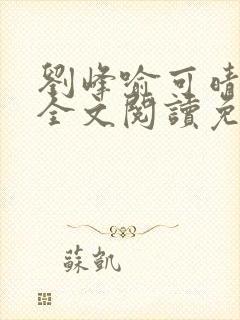 劉峰喻可晴
全文閱讀免
蘇凱